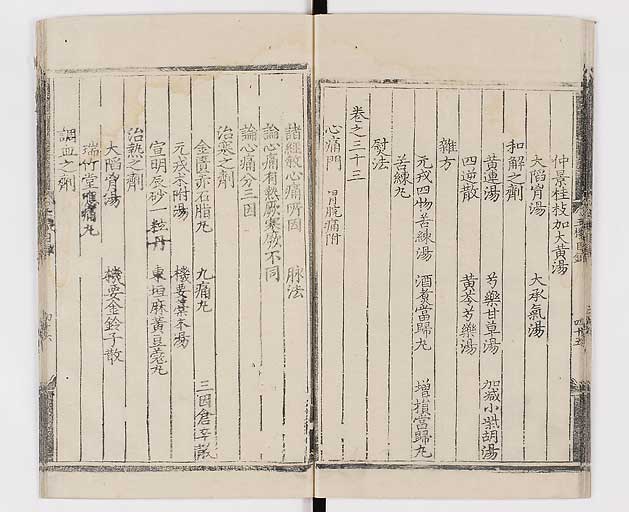 仲景桂枝加大黄湯
大陷胷湯 大承氣湯
和解之劑
黄連湯 芍藥甘草湯 加减小柴胡湯
四逆散 黄芩芍藥湯
雜方
元戎四物苦練湯 酒煮當歸丸 增損當歸丸
苦練丸
熨法
卷之三十三
心痛門 胃脘痛附
諸經敘心痛所因 脉法
論心痛有熱厥寒厥不同
論心痛分三因
治寒之劑
金匱赤石脂丸 九痛丸 三因倉卒散
元戎朮附湯 機要蒼朮湯
宣明辰砂一粒丹 東垣麻黄豆蔻丸
治熱之劑
大陷胷湯 機要金鈴子散
瑞竹堂應痛丸
調血之劑